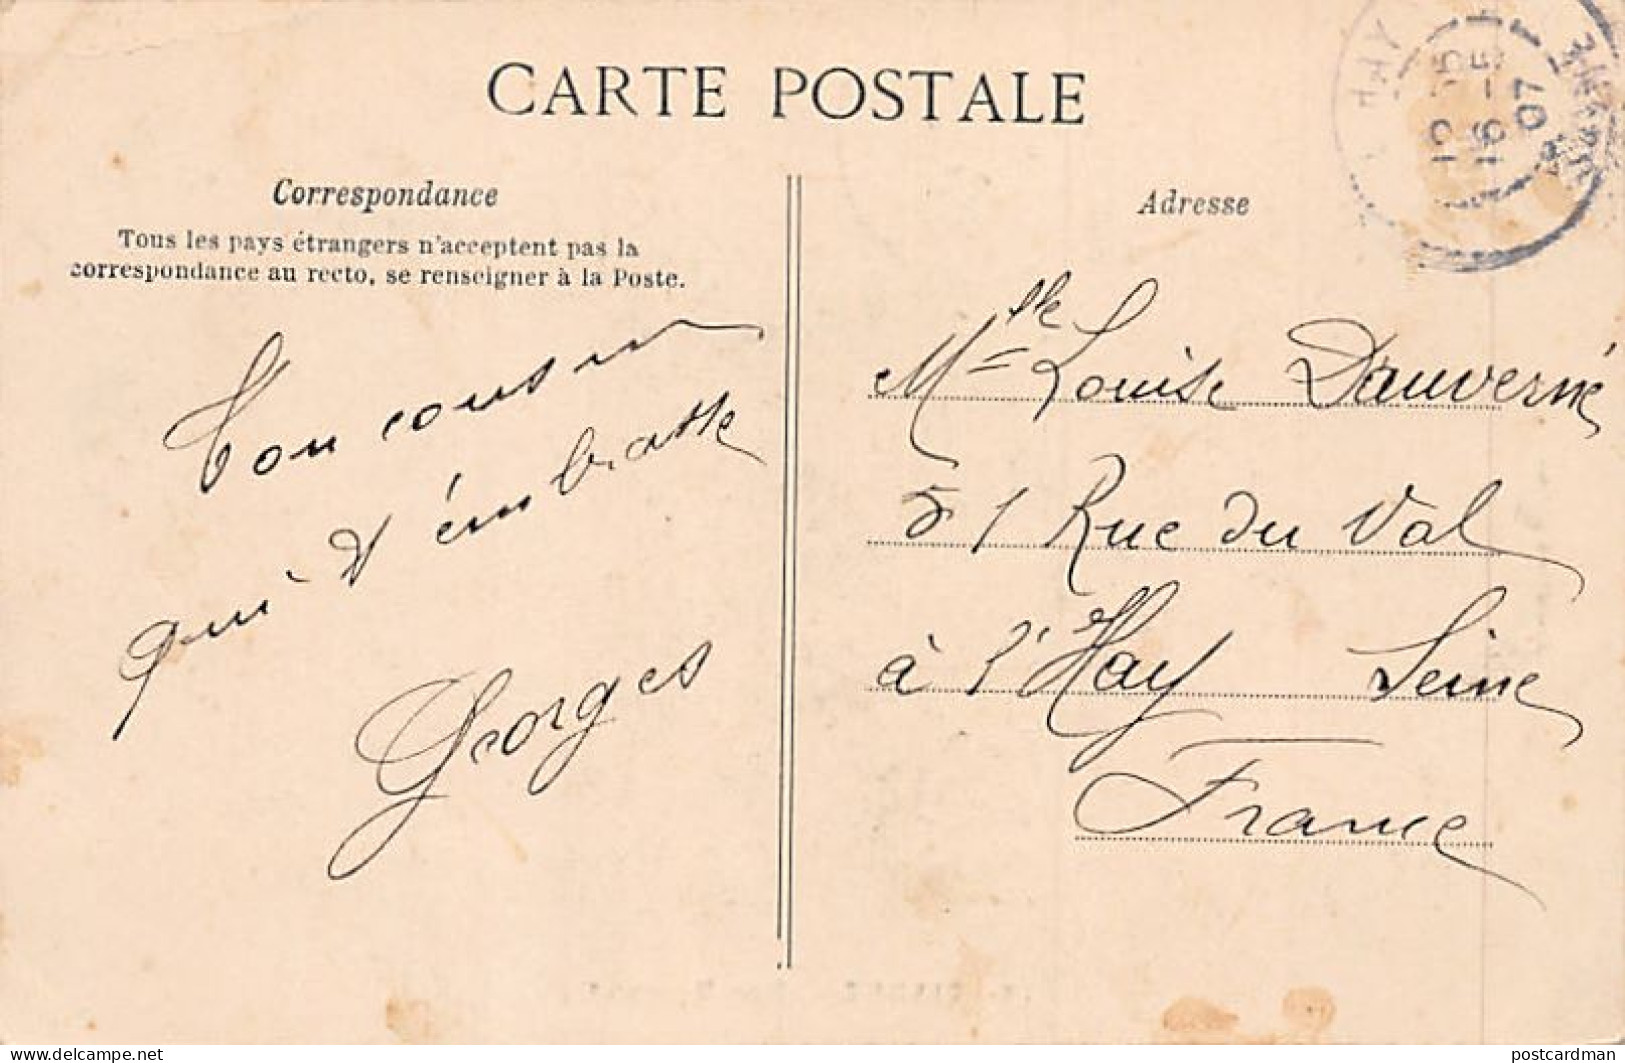 CARTE POSTALE
Correspondance
Tous les pays étrangers n'acceptent pas la
correspondance au recto, se renseigner à la Poste.
Ton cousin
qui t'embrasse
Georges
Adresse
Mlle Louise Dauverné
51 Rue du Val
à l'Hay Seine
France
HAY
12 35
16 -5
07
SEINE
delcampe.net
postcardman